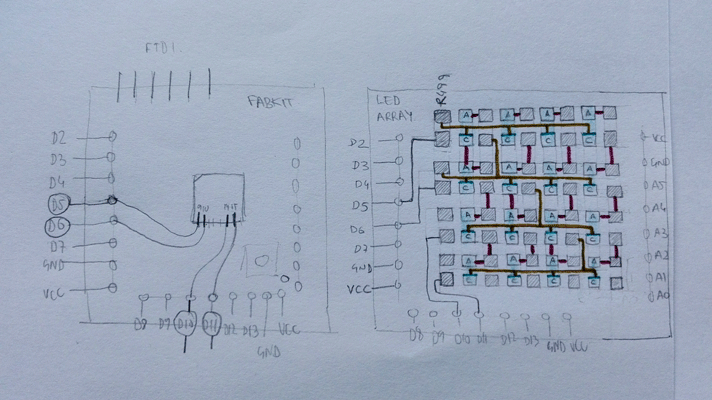 FTDI.
FABKIT
D2
D3
D4
D5
D6
D7
GND
VCC
D8
D9
D10
D11
D12
D13
GND
VCC
LED
ARRAY
R499
D2
D3
D4
D5
D6
D7
GND
VCC
A A A A
C C C C
A A A A
C C C C
A A A A
C C C C
A A A A
C C C C
VCC
GND
A5
A4
A3
A2
A1
A0
D8
D9
D10
D11
D12
D13
GND
VCC